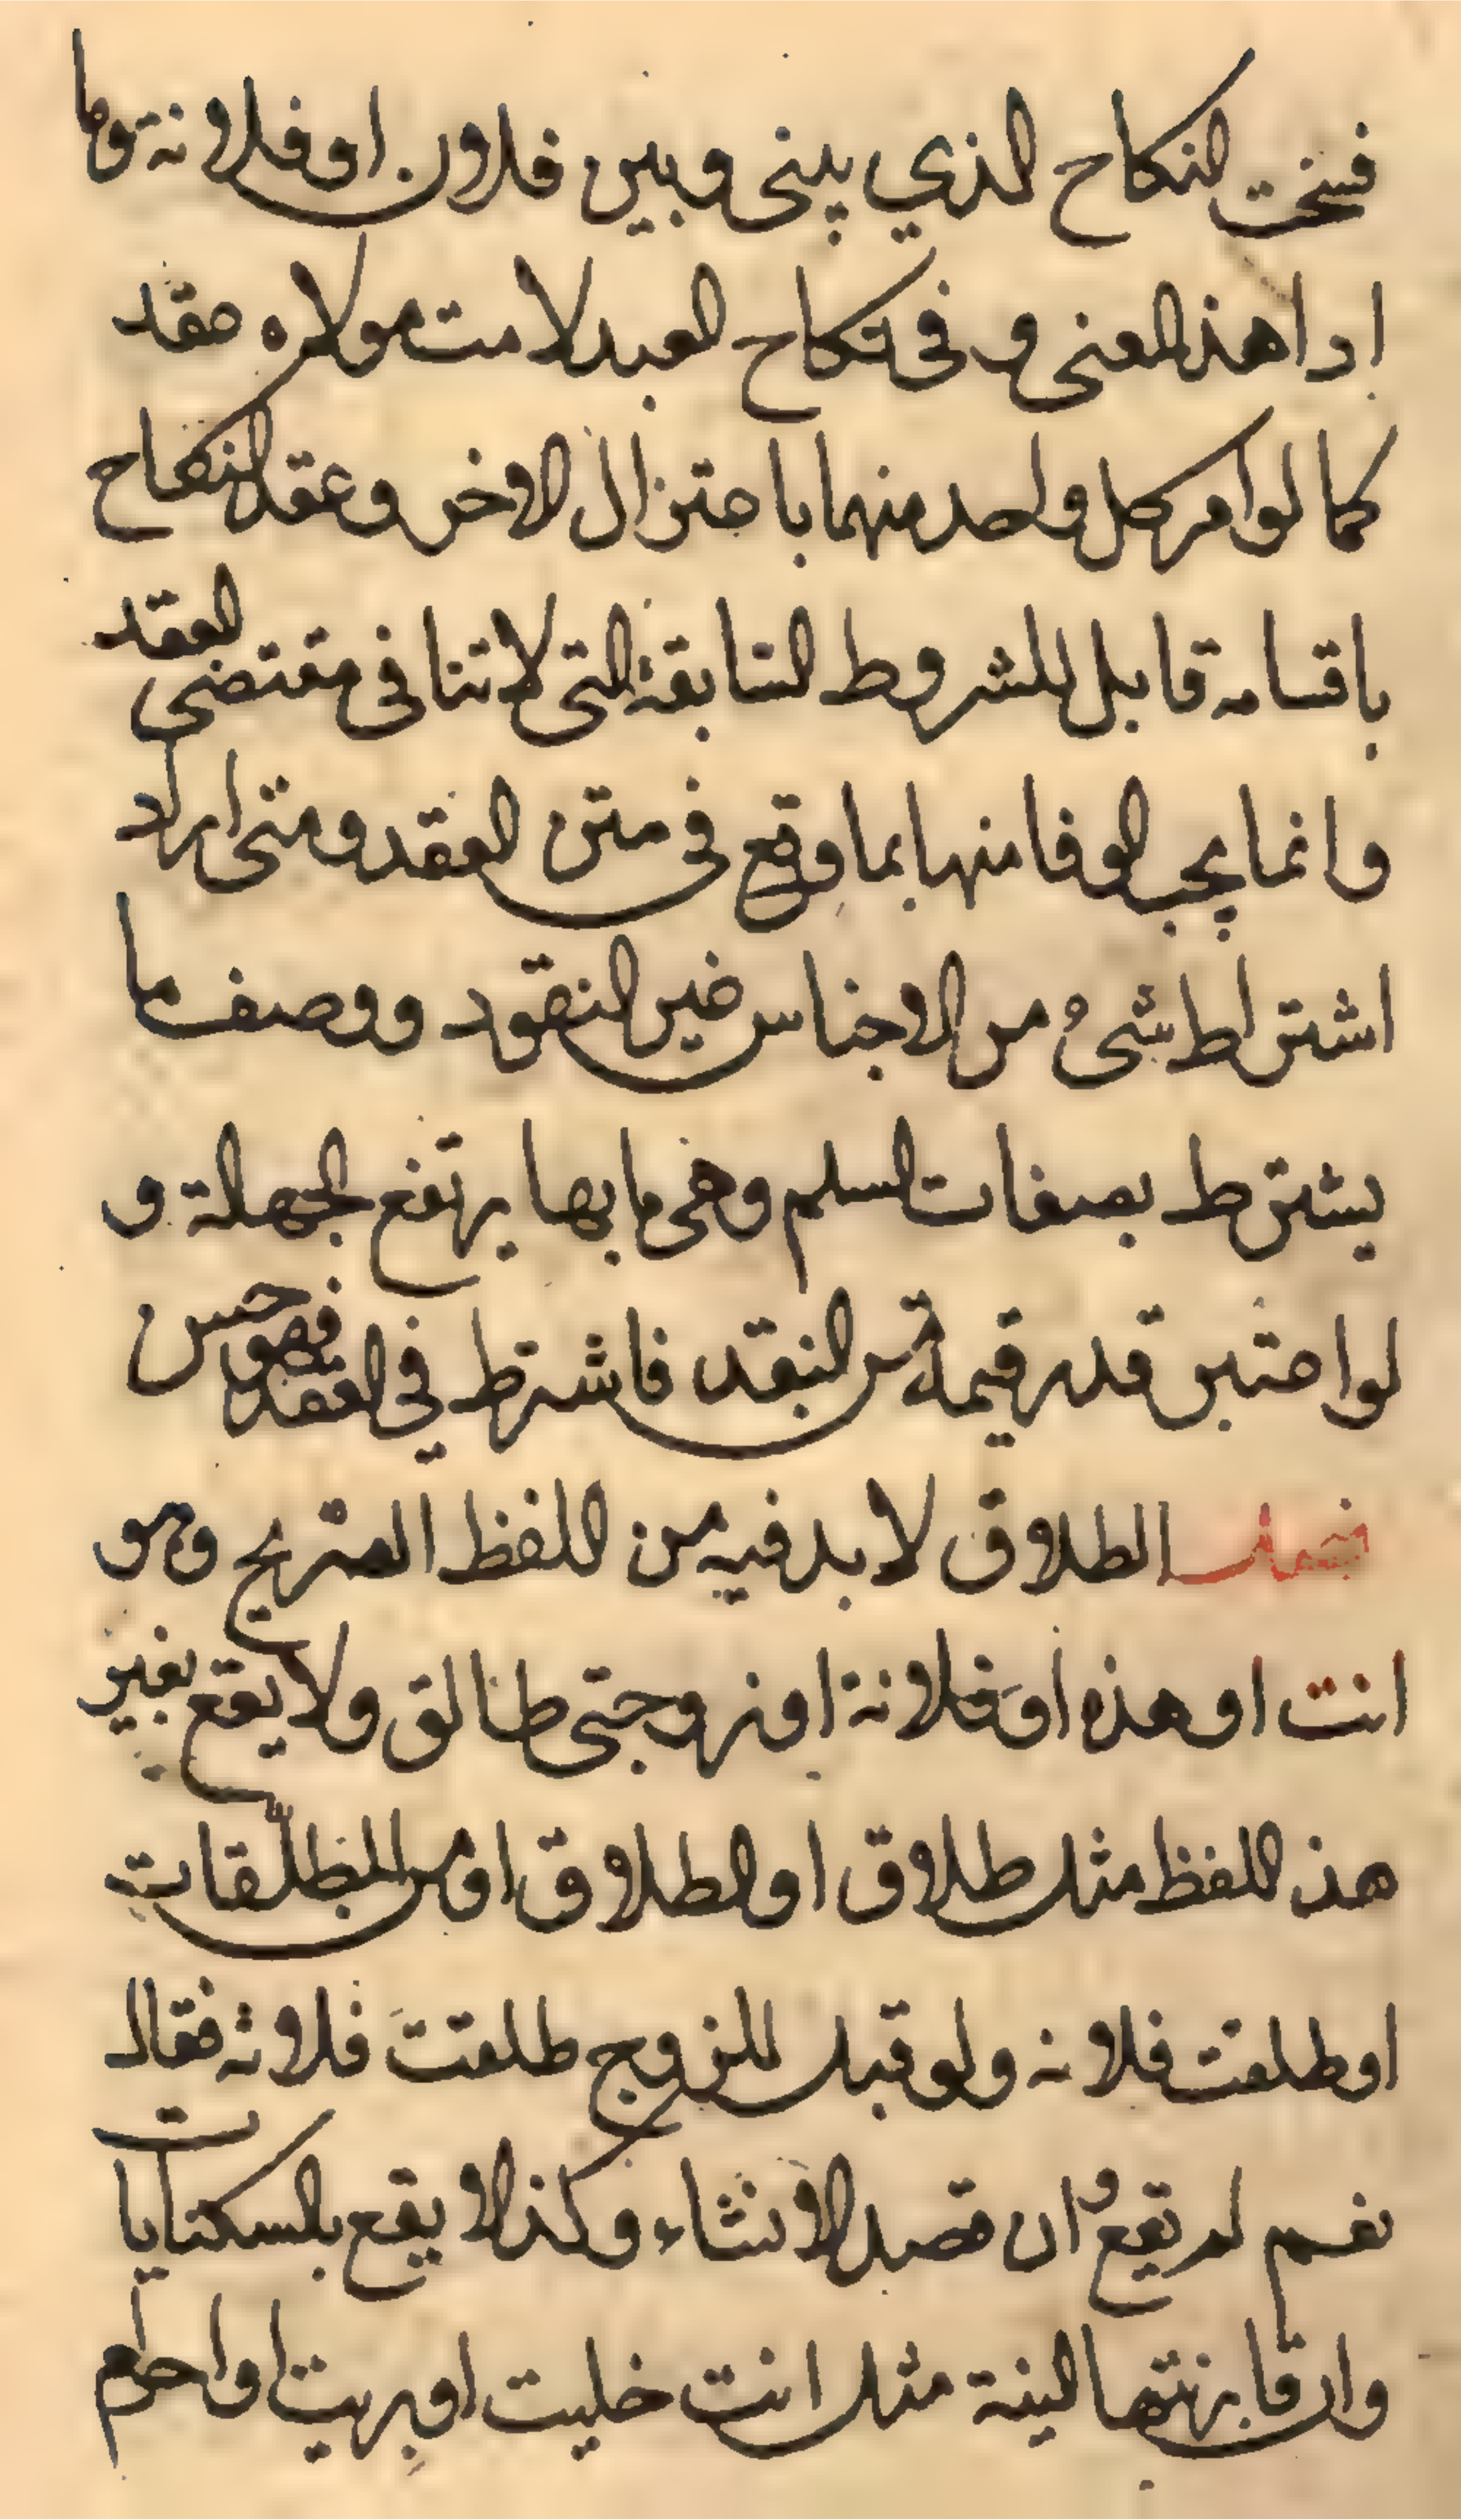 فسخت النكاح الذي بيني وبين فلان او فلانة وما
ادا هذ المعنى و في نكاح العبد لامت مولاه عقد
كما لو امر كل واحد منهما باعتزال الاخر وعقد النكاح
باقسامه قابل للشروط السابقة التى لا تنافى مقتضى العقد
وانما يجب الوفا منها بما وقع في متن العقد ومتى اراد
اشتراط شىء من الاجناس غير النقود ووصف ما
يشترط بصفات السلم وهى ما بها يرتفع الجهالة و
لو اعتبر قدر قيمة من النقد فاشترط في العقد فهو حسن
فصل الطلاق لا بد فيه من اللفظ الصريح وهو
انت او هذه او فلانة او زوجتى طالق ولا يقع بغير
هذ اللفظ مثل طلاق او الطلاق او من المطلّقات
او طلقت فلانه ولو قيل للزوج طلقتَ فلانة فقال
نعم لم تقع وان قصد الانشاء وكذا لا يقع بالكنايات
وان قارنتها النية مثل انت خليت او بريت او احرام